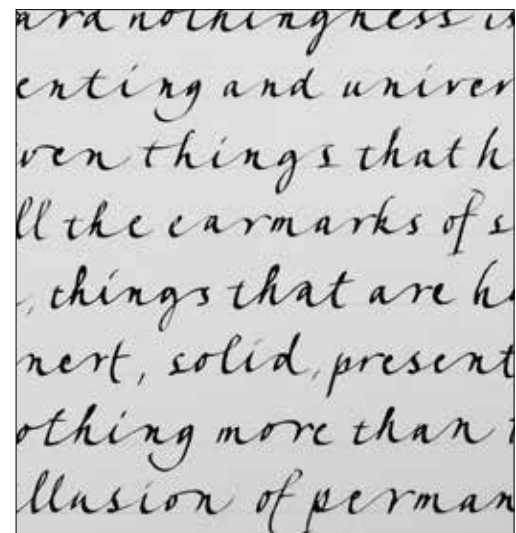 ard nothingness is
enting and univer
ven things that h
ll the earmarks of s
, things that are ha
nert, solid, present
othing more than t
llusion of perman